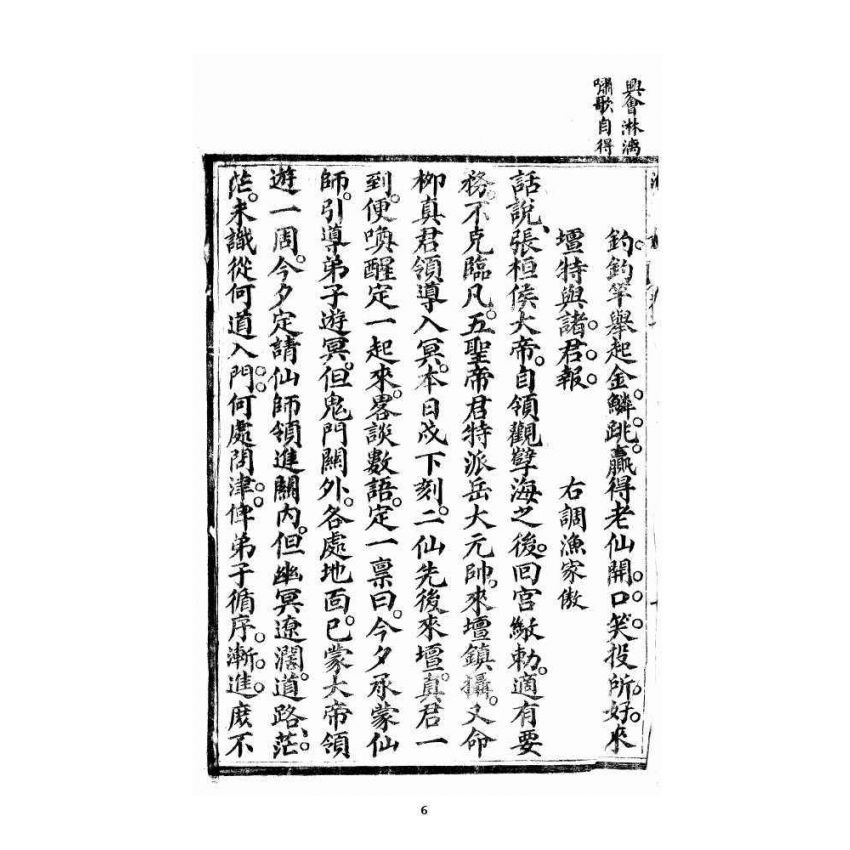 興會淋漓
嘯歌自得
釣釣竿舉起金鱗跳。贏得老仙開口笑投所好。來
壇特與諸君報。 右調漁家傲
話說、張桓侯大帝。自領觀孽海之後。回宮繳勅。適有要
務。不克臨凡。五聖帝君特派岳大元帥。來壇鎮攝。又命
柳真君領導入冥。本日戍下刻。二仙先後來壇。真君一
到。便喚醒定一起來。畧談數語。定一禀曰。今夕承蒙仙
師。引導弟子遊冥。但鬼門關外。各處地面。已蒙大帝領
遊一周。今夕定請仙師領進關內。但幽冥遼濶。道路、茫、
茫。未識從何道入門。何處問津。俾弟子循序。漸。進。庶不
6